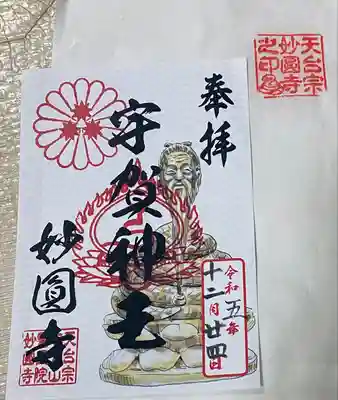 奉拝
宇賀神王
妙圓寺
令和五年
十二月廿四日
天台宗
妙圓寺
之印
天台宗
妙圓寺